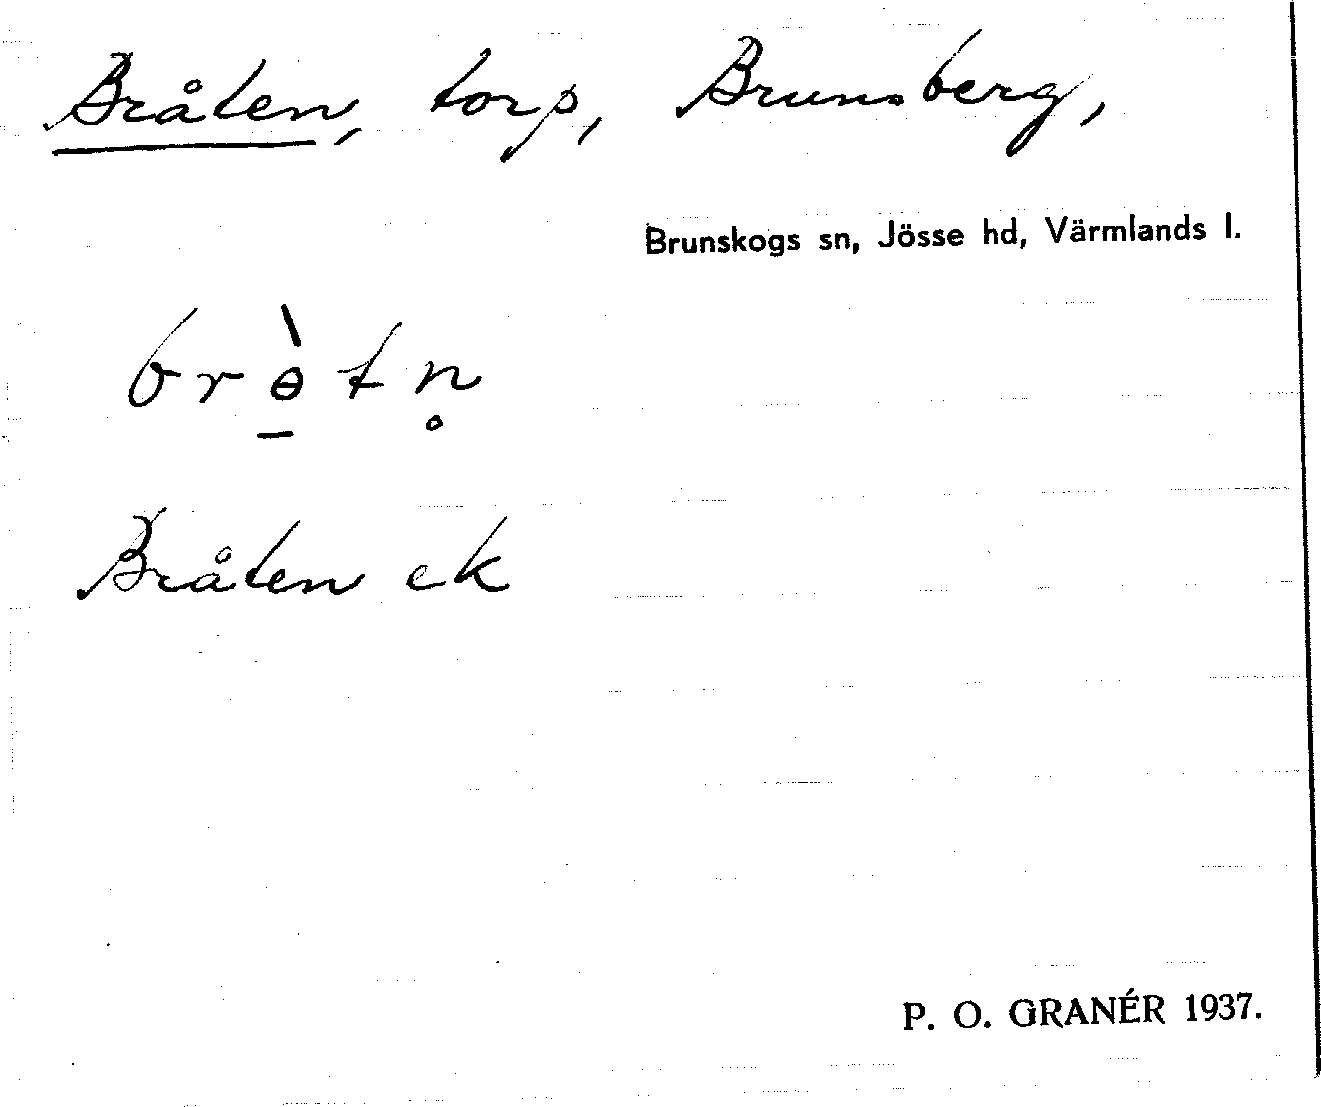 Bråten, torp, Brunsberg,
Brunskogs sn, Jösse hd, Värmlands l.
brɵ̠̀tn̥
Bråten ek
P. O. GRANÉR 1937.